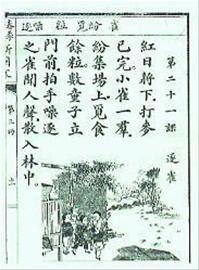 雀 紛 覓 粒 噪 逐
第二十一課 逐雀
紅日將下.打麥
已完.小雀一羣.
紛集場上.覓食
餘粒.數童子立
門前.拍手噪逐
之.雀聞人聲.散入林中.